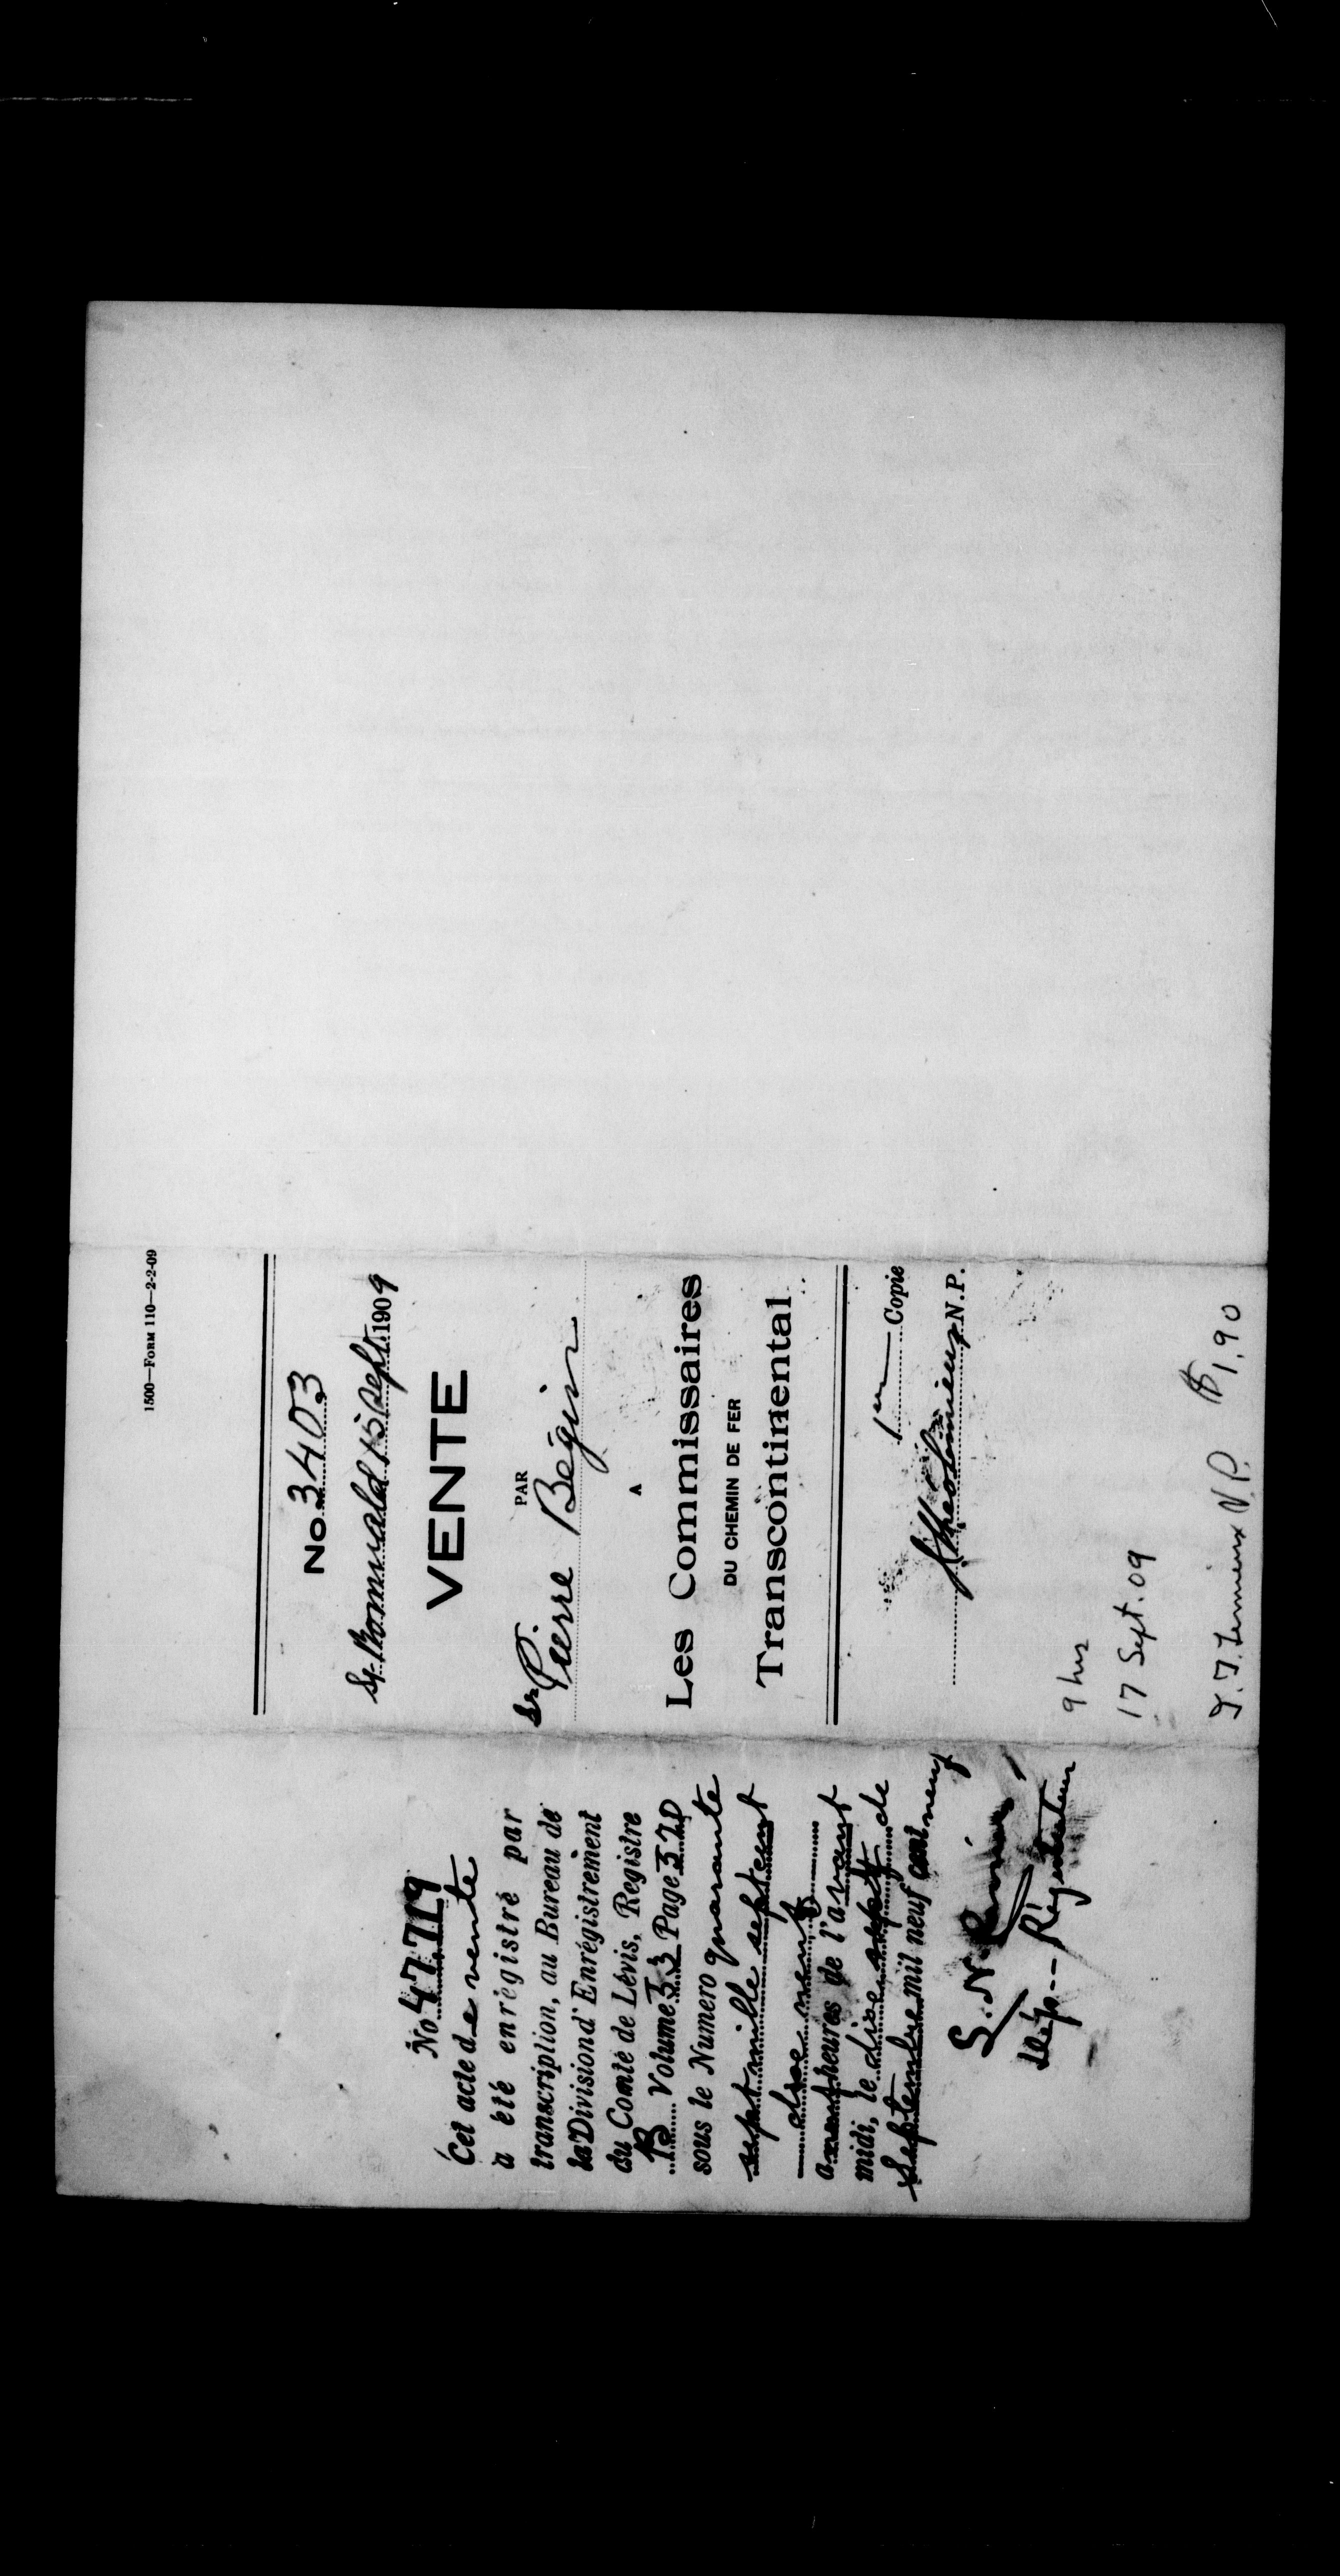 No 47.719
Cet acte de vente
a été enrégistré par
transcription, au Bureau de
la Division d'Enrégistrement
du Comté de Lévis, Registre
B Volume 53 Page
sous le Numero quarante
sept mille sept cent
dix neuf
a neuf heures de l'avant
midi, le dix sept de
Septembre mil neuf cent neuf
Dép-- Régistrateur
1500—FORM 110—2-2-09
No 3403
St. Romuald 15 Sept. 1909
VENTE
PAR
Sr Pierre Bégin
A
Les Commissaires
DU CHEMIN DE FER
Transcontinental
1ère Copie
Lemieux N.P.
9 hrs
17 Sept. 09
Lemieux N.P. $1,90